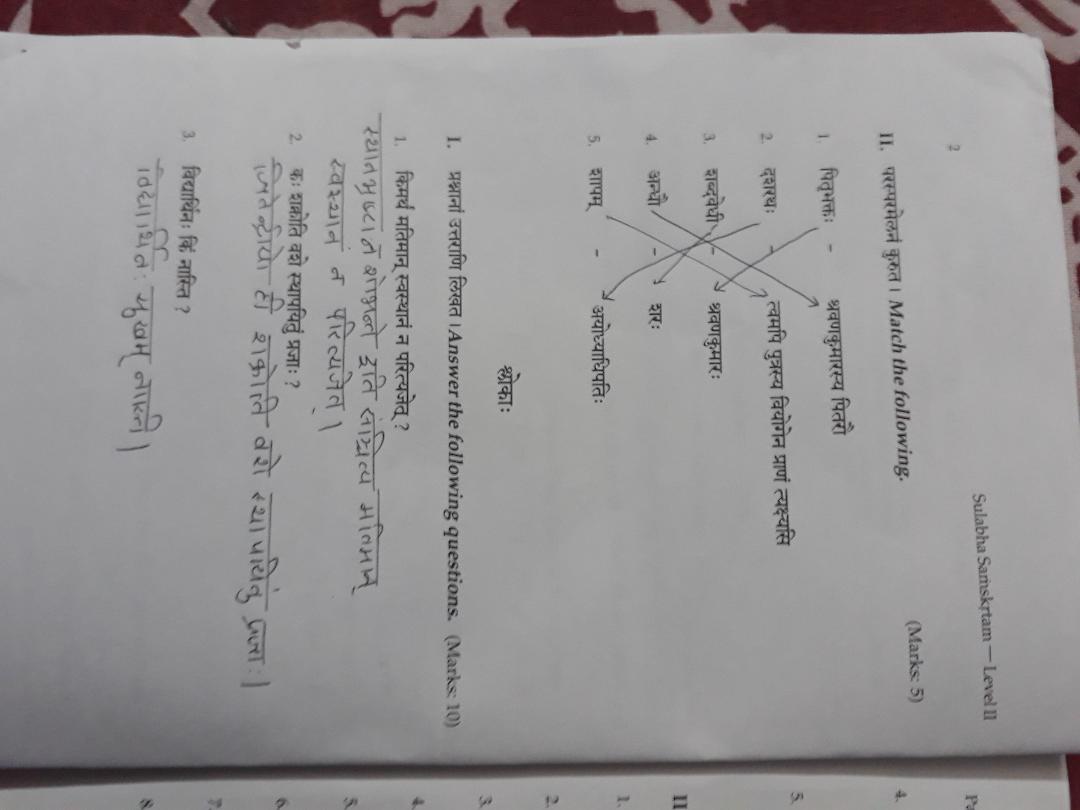 Sulabha Saṁskṛtam — Level II
2
II. परस्परमेलनं कुरुत । Match the following. (Marks: 5)
1. पितृभक्तः - श्रवणकुमारस्य पितरौ
2. दशरथः - त्वमपि पुत्रस्य वियोगेन प्राणं त्यक्ष्यसि
3. शब्दवेधी - श्रवणकुमारः
4. अन्धौ - शरः
5. शापम् - अयोध्याधिपतिः
श्लोकाः
I. प्रश्नानां उत्तराणि लिखत । Answer the following questions. (Marks: 10)
1. किमर्थं मतिमान् स्वस्थानं न परित्यजेत् ?
स्थानभ्रष्टा न शोभन्ते इति संचित्य मतिमान्
स्वस्थानं न परित्यजेत् ।
2. कः शक्नोति वशे स्थापयितुं प्रजाः ?
जितेन्द्रीयो ही शक्नोति वशे स्थापयितुं प्रजाः ।
3. विद्यार्थिनः किं नास्ति ?
विद्यार्थिनः सुखम् नास्ती ।
Pa
4.
5.
II
1.
2.
3.
4.
5.
6.
7.
8.